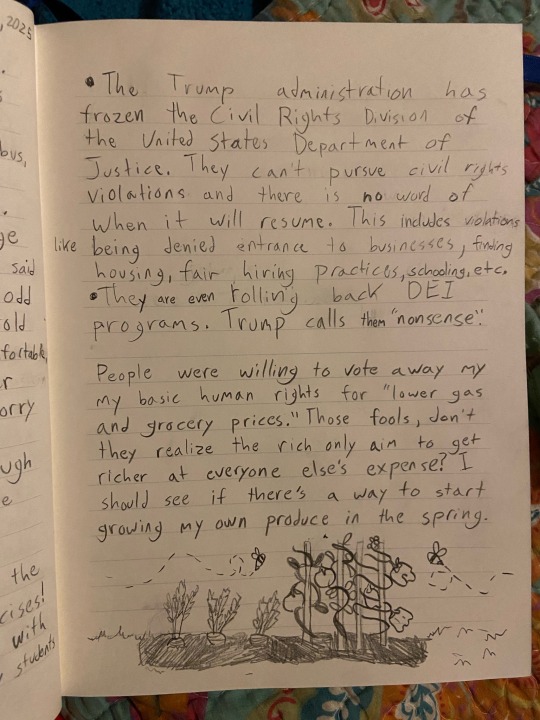 , 2025
bus,
ge
said
odd
old
fortable
r
orry
ugh
e
the
cises!
with
students
• The Trump administration has
frozen the Civil Rights Division of
the United States Department of
Justice. They can't pursue civil rights
violations and there is no word of
when it will resume. This includes violations
like being denied entrance to businesses, finding
housing, fair hiring practices, schooling, etc.
• They are even rolling back DEI
programs. Trump calls them "nonsense".
People were willing to vote away my
my basic human rights for "lower gas
and grocery prices." Those fools, don't
they realize the rich only aim to get
richer at everyone else's expense? I
should see if there's a way to start
growing my own produce in the spring.